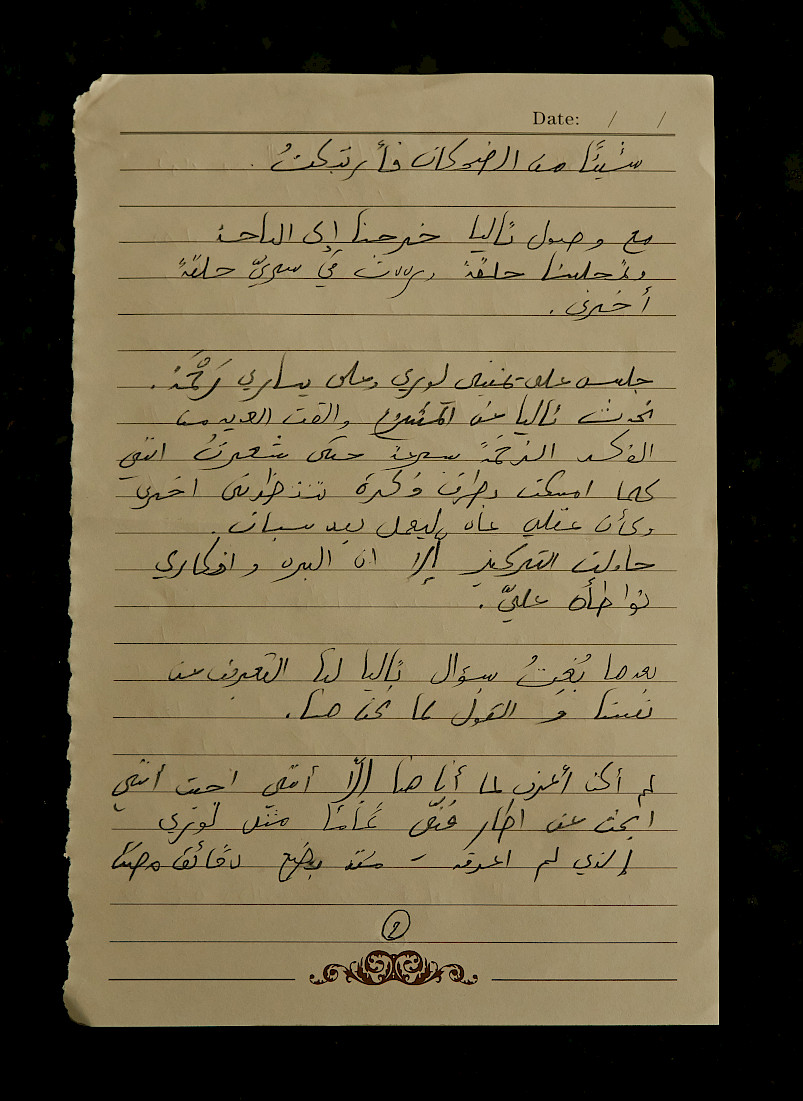 Date: / /
شيئًا من الضحكات فأرتبكتُ.
مع وصول ناليا خرجنا إلى الباحة
حلقةً في سريّ حلقةً
أخرى.
جلست على يميني لوري وعلى يساري رَحْمَة.
ناليا عن المشروع والقت العديد من
سريعة حتى شعرتُ انني
كلما امسكت بطرف فكرة تنتظرني اخرى
وكأن عقلي عاد ليعمل بعد سبات.
حاولت التركيز إلا ان البرد وافكاري
تواطأه عليّ.
بعدها سؤال ناليا لنا التعريف عن
نفسنا و القول لما نحن هنا.
لم أكن أعرف لما أنا هنا إلّا أنني اجبت أنني
ابحث عن اطار فنّي تمامًا مثل لوري
إلذي لم اعرفه - منذ بضع دقائق
2